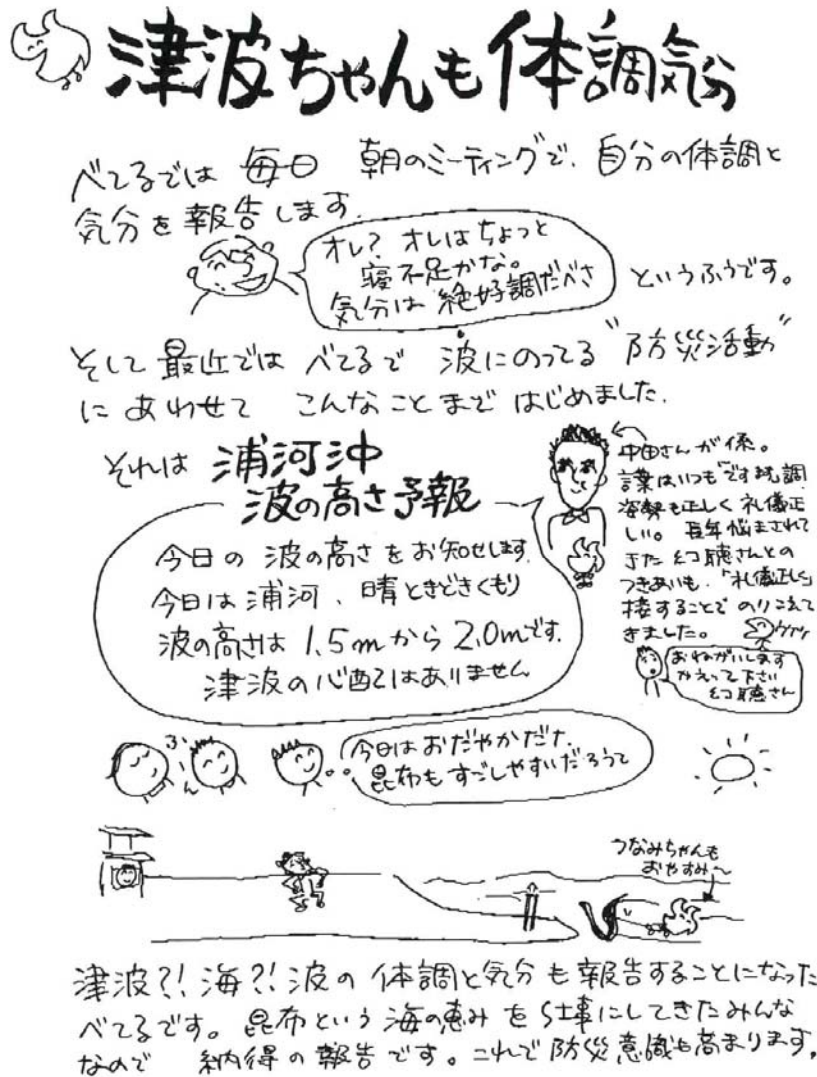 津波ちゃんも体調気分
べてるでは 毎日 朝のミーティングで、自分の体調と
気分を報告します。
オレ? オレはちょっと
寝不足かな。
気分は絶好調だべさ
というふうです。
そして 最近では べてるで 波にのってる "防災活動"
に あわせて こんなことまで はじめました。
それは 浦河沖
波の高さ予報
今日の 波の高さをお知せします。
今日は浦河、晴ときどきくもり
波の高さは 1.5mから 2.0mです。
津波の心配はありません
中田さんが係。
言葉はいつも"ですます"調
姿勢も正しく 礼儀正
しい。長年悩まされて
きた 幻聴さんとの
つきあいも、「礼儀正しく」
接することで のりこえて
きました。
おねがいします
かえって下さい
幻聴さん
ふんふん
今日はおだやかだナ。
昆布もすごしやすいだろうて
つなみちゃんも
おやすみ〜
津波?! 海?! 波の 体調と気分も 報告することになった
べてるです。昆布という 海の恵み を 仕事にしてきたみんな
なので 納得の報告です。これで 防災意識も高まります。